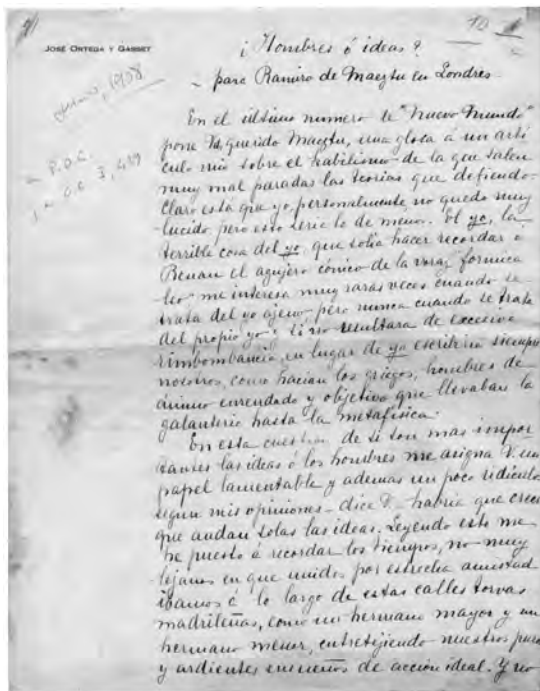 10
JOSÉ ORTEGA Y GASSET
¿Hombres ó ideas?
- para Ramiro de Maeztu en Londres -
1908
En el último numero de "Nuevo Mundo"
pone Vd, querido Maeztu, una glosa á un artí
P.O.C.
culo mio sobre el kabilismo de la que salen
O.C. I, 439
muy mal paradas las teorias que defiendo.
Claro está que yo, personalmente no quedo muy
lucido pero esto seria lo de menos. El yo, la
terrible cosa del yo, que solia hacer recordar á
Renan el agujero cónico de la voraz "formica
leo" me interesa muy raras veces cuando se
trata del yo ajeno pero nunca cuando se trata
del propio yo y si no resultara de excesiva
rimbombancia, en lugar de yo escribiria siempre
nosotros, como hacian los griegos, hombres de
ánimo enredado y objetivo que llevaban la
galanteria hasta la metafísica.
En esta cuestion de si son mas impor
tantes las ideas ó los hombres me asigna V. un
papel lamentable y ademas un poco ridiculo
segun mis opiniones - dice V. - habria que creer
que andan solas las ideas. Leyendo esto me
he puesto á recordar los tiempos, no muy
lejanos en que unidos por estrecha amistad
ibamos á lo largo de estas calles torvas
madrileñas, como un hermano mayor y un
hermano menor, entretejiendo nuestros puros
y ardientes ensueños de acción ideal. Y no